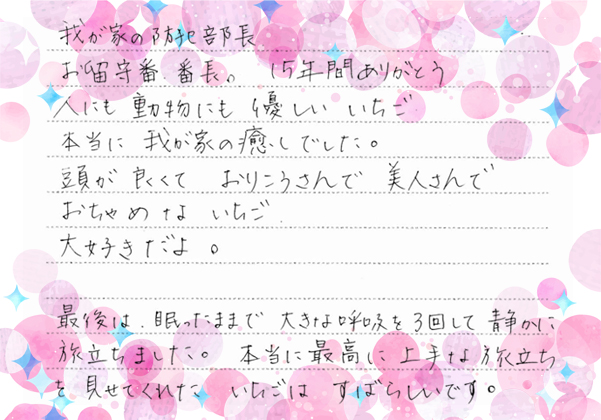 我が家の防犯部長
お留守番 番長。 15年間ありがとう
人にも 動物にも 優しい いちご
本当に 我が家の癒しでした。
頭が 良くて おりこうさんで 美人さんで
おちゃめな いちご
大好きだよ。
最後は、眠ったままで 大きな呼吸を3回して 静かに
旅立ちました。 本当に最高に 上手な 旅立ち
を 見せてくれた いちごは すばらしいです。